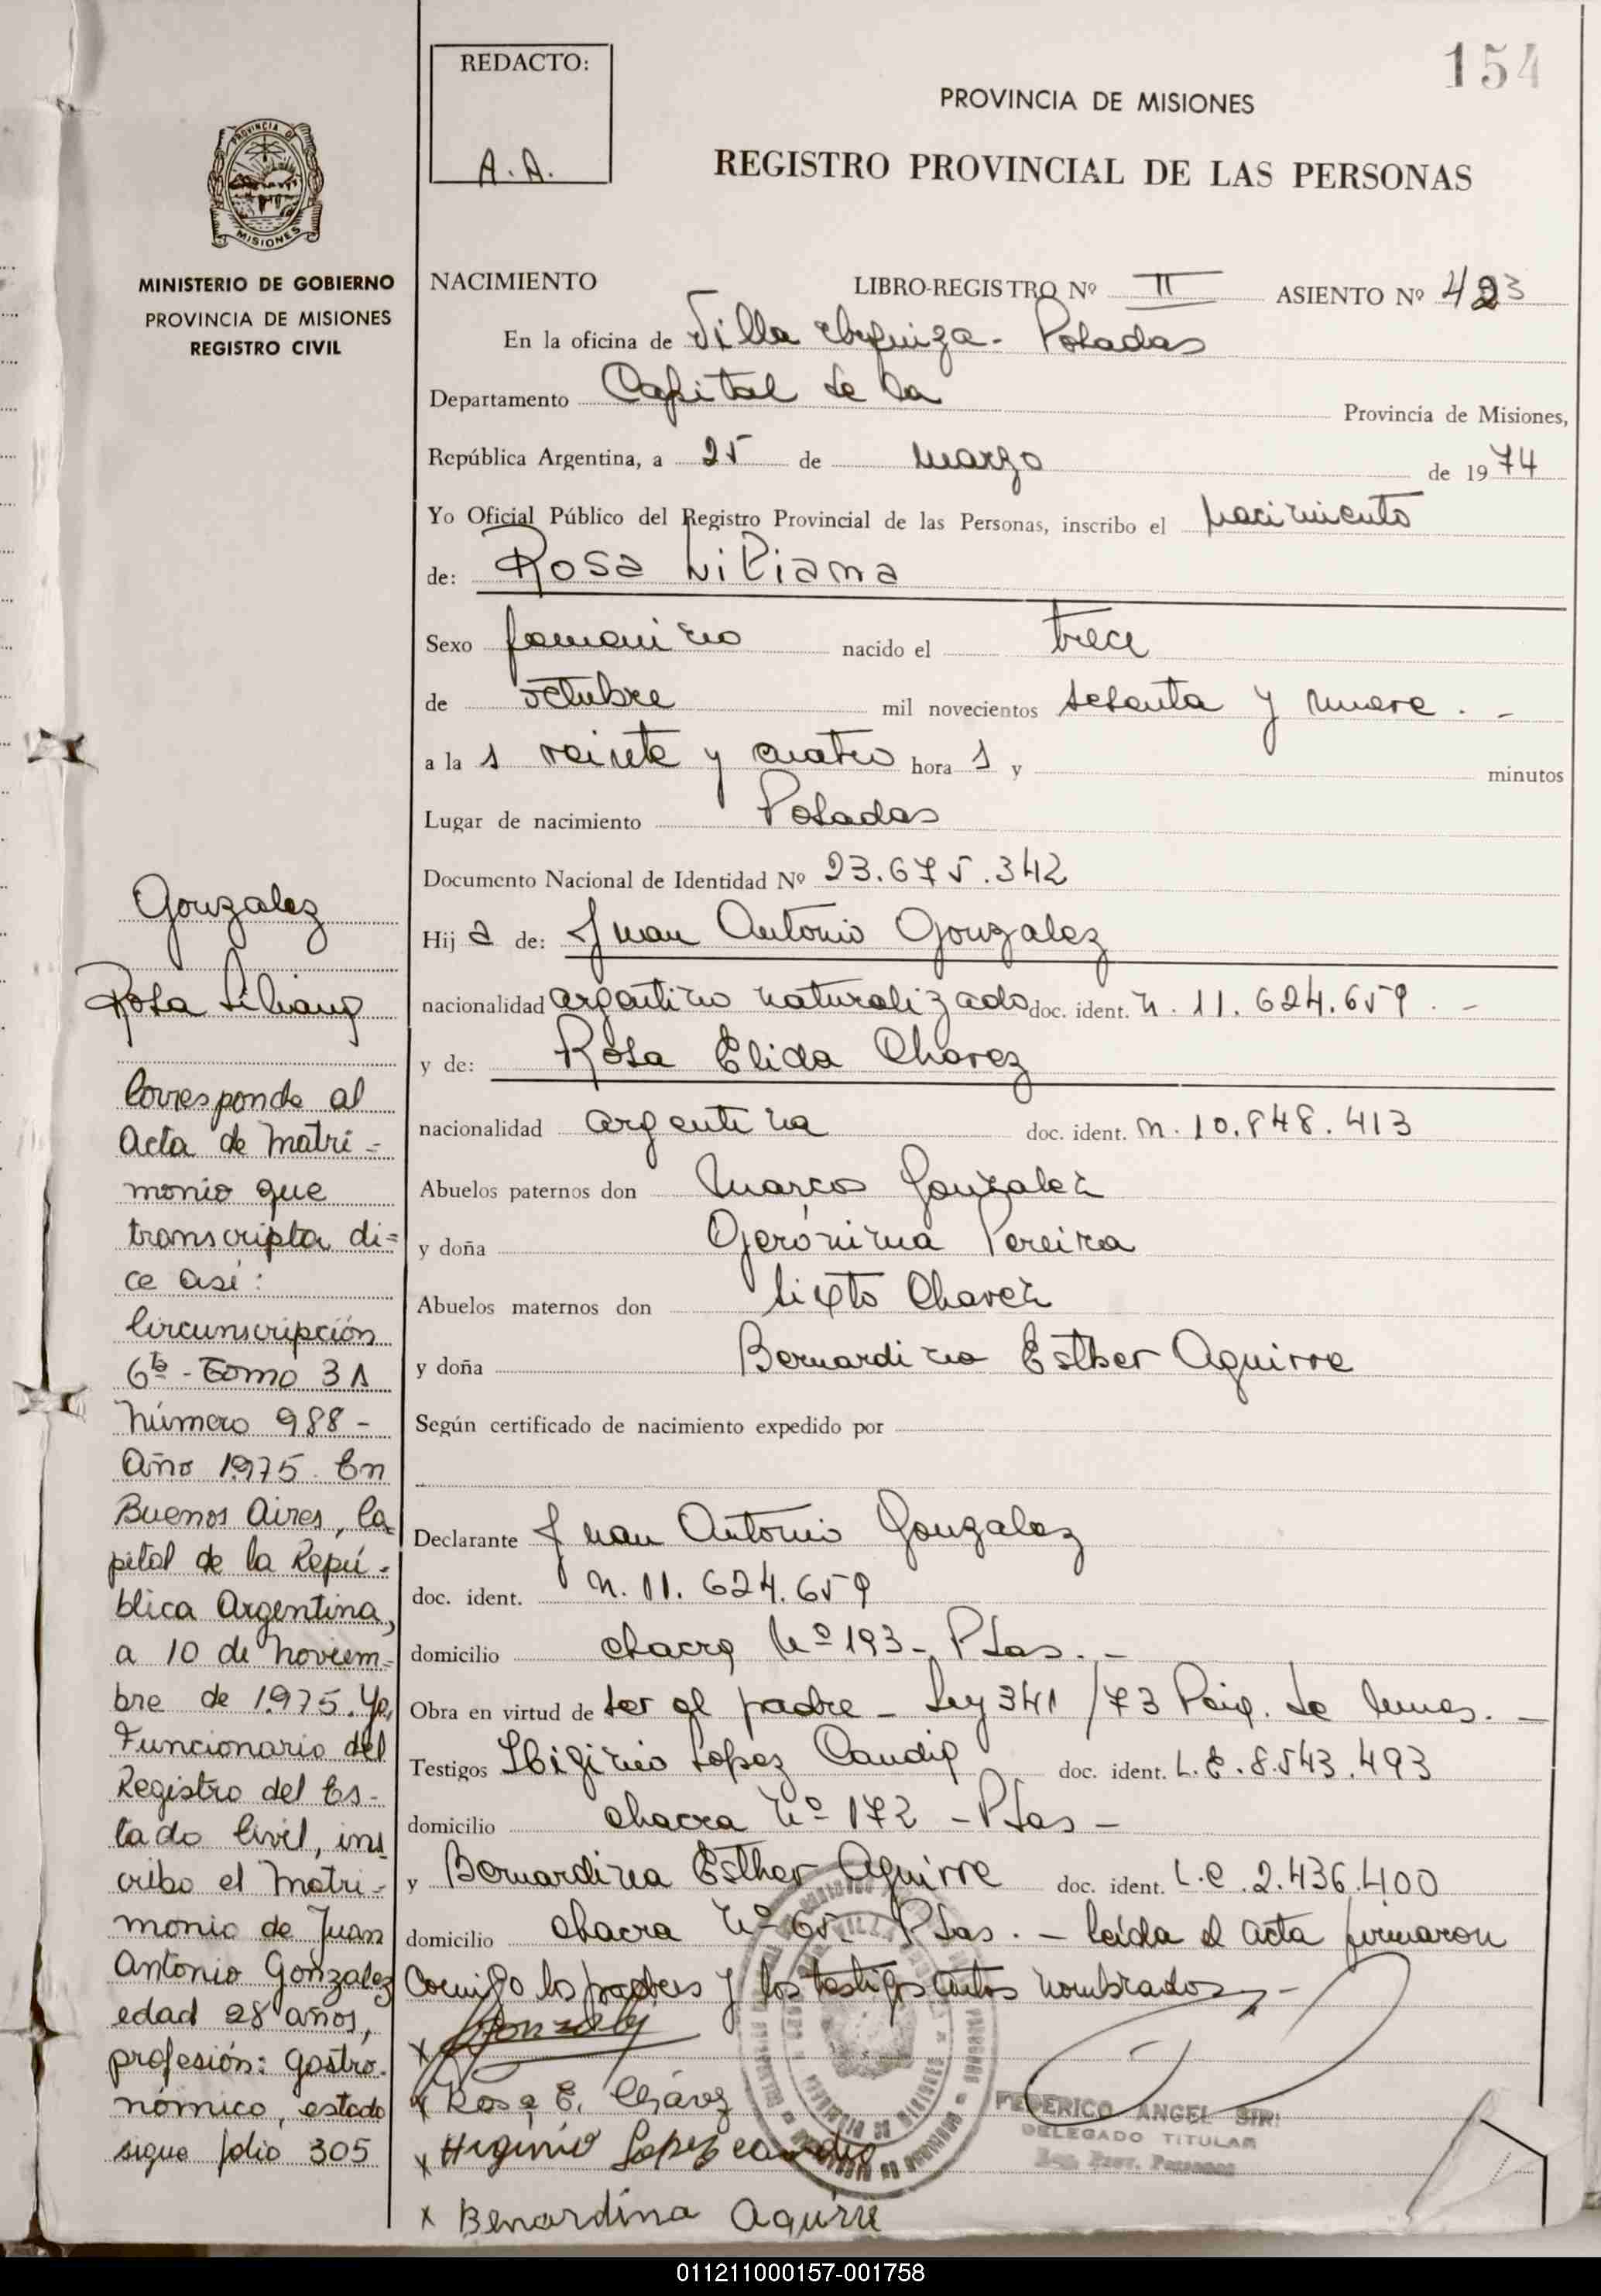 154
REDACTO:
A.A.
PROVINCIA DE MISIONES
REGISTRO PROVINCIAL DE LAS PERSONAS
PROVINCIA DE
MISIONES
MINISTERIO DE GOBIERNO
PROVINCIA DE MISIONES
REGISTRO CIVIL
NACIMIENTO LIBRO-REGISTRO Nº II ASIENTO Nº 423
En la oficina de Villa Urquiza - Posadas
Departamento Capital de la Provincia de Misiones,
República Argentina, a 25 de marzo de 1974
Yo Oficial Público del Registro Provincial de las Personas, inscribo el nacimiento
de: Rosa Liliana
Sexo femenino nacido el trece
de octubre mil novecientos setenta y nueve . -
a la s veinte y cuatro hora s y minutos
Lugar de nacimiento Posadas
Documento Nacional de Identidad Nº 23.675.342
Hij a de: Juan Antonio Gonzalez
nacionalidad argentino naturalizado doc. ident. n. 11.624.659 . -
y de: Rosa Elida Chavez
nacionalidad argentina doc. ident. n. 10.848.413
Abuelos paternos don Marcos Gonzalez
y doña Gerónima Pereira
Abuelos maternos don Sixto Chavez
y doña Bernardina Esther Aguirre
Según certificado de nacimiento expedido por
Declarante Juan Antonio Gonzalez
doc. ident. n. 11.624.659
domicilio chacra Nº 193 - Psas. -
Obra en virtud de ser el padre - Ley 341/73 -
Testigos Higinio Lopez Candia doc. ident. L.E. 8.543.493
domicilio chacra Nº 172 - Psas -
y Bernardina Esther Aguirre doc. ident. L.C. 2.436.400
domicilio chacra Nº 65 Psas. - Leída el acta firmaron
conmigo los padres y los testigos antes nombrados -
x Gonzalez
x Rosa E. Chávez
x Higinio Lopez candia
x Benardina Aguirre
FEDERICO ANGEL
DELEGADO TITULAR
Reg. Prov. Personas
Gonzalez
Rosa Liliana
Corresponde al
Acta de Matri=
monio que
transcripta di=
ce así:
Circunscripción
6ta - Tomo 3A
Número 988 -
Año 1975. En
Buenos Aires, Ca=
pital de la Repú=
blica Argentina,
a 10 de Noviem=
bre de 1975. Yo,
Funcionario del
Registro del Es-
tado Civil, ins
cribo el Matri-
monio de Juan
Antonio Gonzalez
edad 28 años,
profesión: gastro.
nómico, estado
sigue folio 305
011211000157-001758